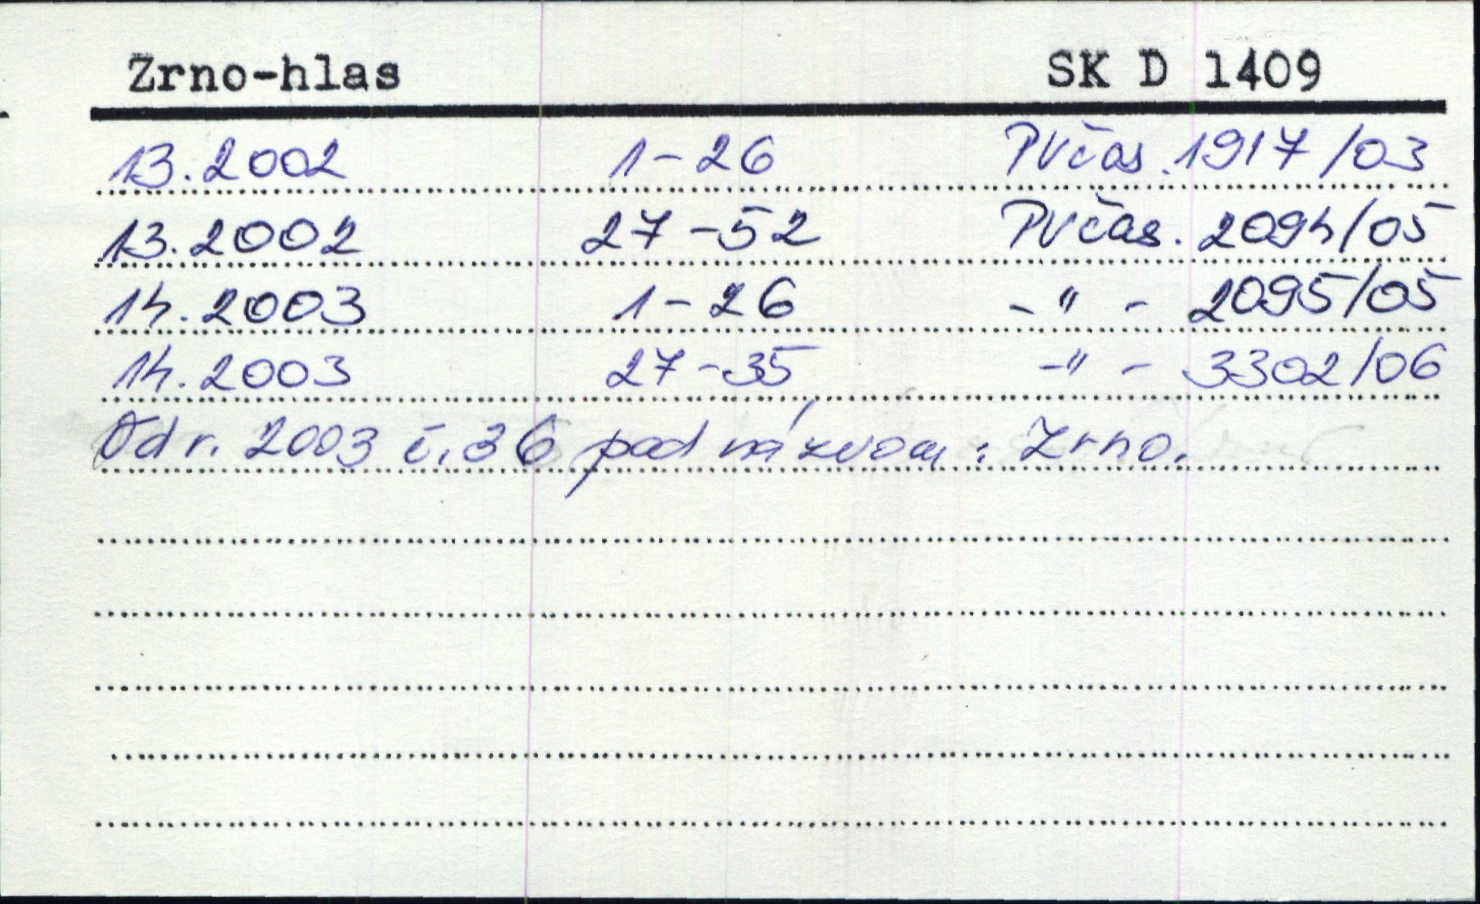 Zrno-hlas SK D 1409
13.2002 1-26 PVčas. 1917/03
13.2002 27-52 PVčas. 2094/05
14.2003 1-26 -"- 2095/05
14.2003 27-35 -"- 3302/06
Od r. 2003 č. 36 pod názvom: Zrno.